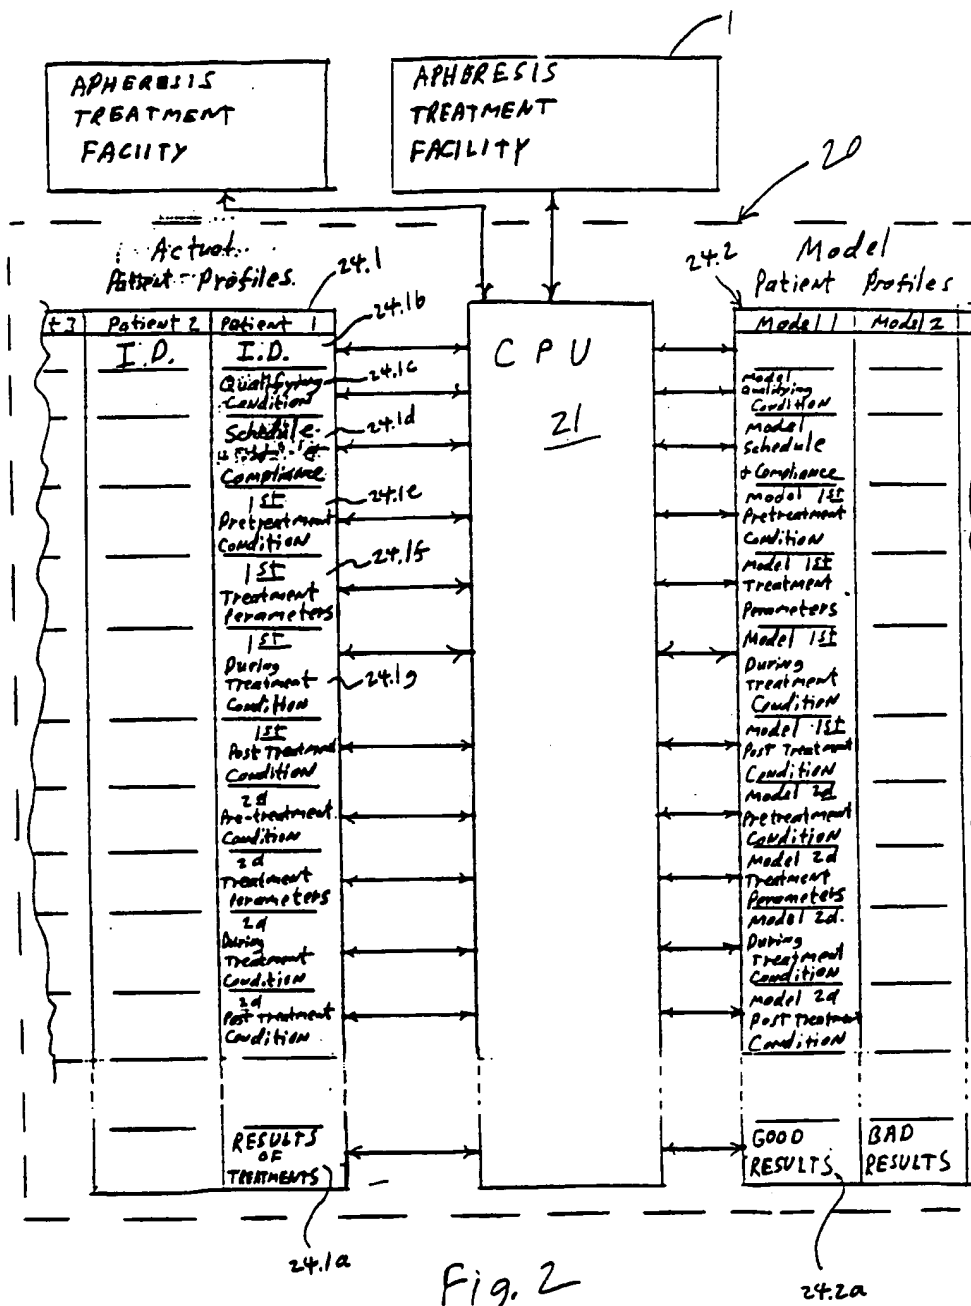 1
APHERESIS
TREATMENT
FACIITY
APHERESIS
TREATMENT
FACILITY
20
Actual
Patient Profiles.
24.1
24.2
Model
Patient Profiles
t 3 Patient 2 Patient 1
Model 1 Model 2
24.1b
I.D. I.D.
CPU
21
Qualifying
Condition
24.1c
Schedule
Compliance
24.1d
1st
Pretreatment
Condition
24.1e
1st
Treatment
Perameters
24.1f
1st
During
Treatment
Condition
24.1g
1st
Post Treatment
Condition
2d
Pre-treatment
Condition
2d
Treatment
Perameters
2d
During
Treatment
Condition
2d
Post Treatment
Condition
RESULTS
OF
TREATMENTS
24.1a
Model
Qualifying
Condition
Model
Schedule
+ Compliance
Model 1st
Pretreatment
Condition
Model 1st
Treatment
Perameters
Model 1st
During
Treatment
Condition
Model 1st
Post Treatment
Condition
Model 2d
Pretreatment
Condition
Model 2d
Treatment
Perameters
Model 2d.
During
Treatment
Condition
Model 2d
Post Treatment
Condition
GOOD
RESULTS
BAD
RESULTS
24.2a
Fig. 2